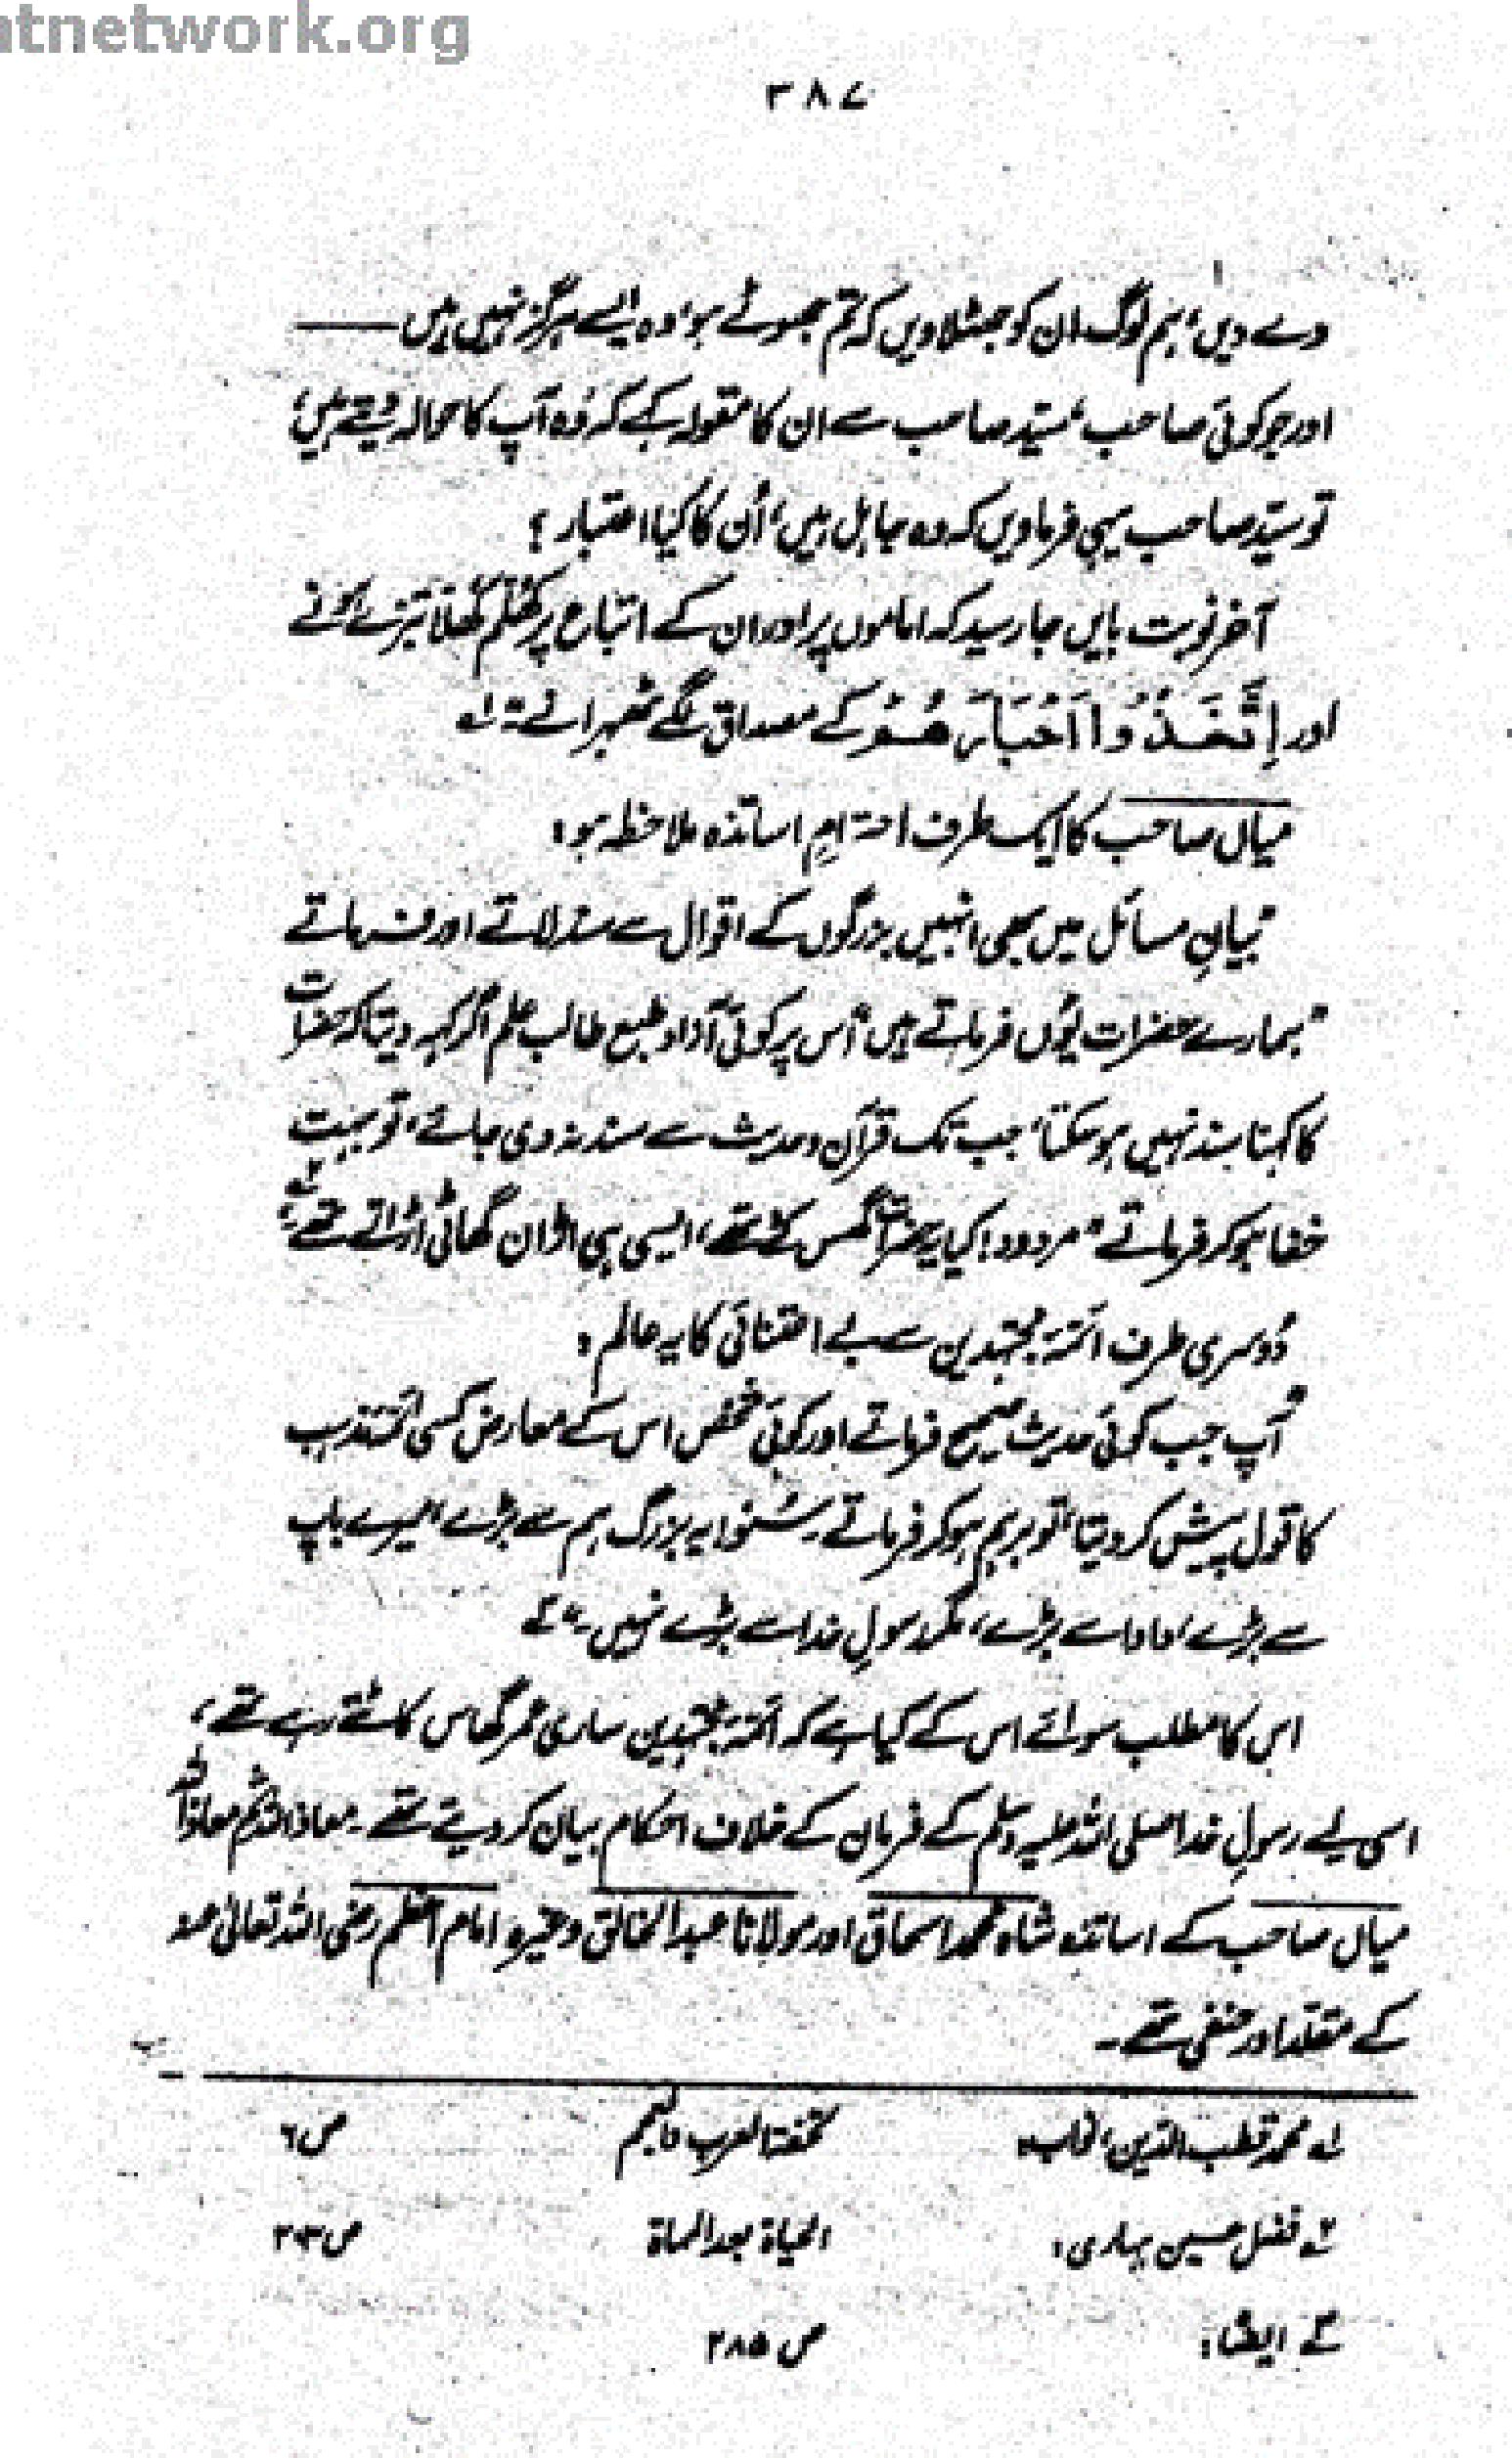 atnetwork.org
۳۸۷
دے دیں، ہم لوگ ان کو جھٹلا دیں کہ تم جھوٹے ہو، وہ ایسے ہرگز نہیں ہیں ——
اور جو کوئی صاحب، سیّد صاحب سے ان کا مقولہ کہے کہ وُہ آپ کا حوالہ دیتے ہیں،
تو سیّد صاحب یہی فرما دیں کہ وہ جاہل ہیں، اُن کا کیا اعتبار؟
آخر نوبت بایں جا رسید کہ اماموں پر اور ان کے اتباع پر کھُلم کھُلا تبرّے ہونے
اور اِتَّخَذُوا اَحْبَارَهُمْ کے مصداق لگے ٹھہرانے۔" لے
میاں صاحب کا ایک طرف احترامِ اساتذہ ملاحظہ ہو:
"بیانِ مسائل میں بھی انہیں بزرگوں کے اقوال سے سند لاتے اور فرماتے
"ہمارے حضرات یُوں فرماتے ہیں" اُس پر کوئی آزاد طبع طالب علم اگر کہہ دیتا کہ حضرات
کا کہنا سند نہیں ہو سکتا، جب تک قرآن و حدیث سے سند نہ دی جائے، تو بہت
خفا ہو کر فرماتے "مردود! کیا یہ حضرات گھس کٹے تھے، ایسی ہی اڑان گھاٹی اڑاتے تھے۔" ٢ے
دُوسری طرف ائمۂ مجتہدین سے بے اعتنائی کا یہ عالم:
"آپ جب کوئی حدیث صحیح فرماتے اور کوئی شخص اس کے معارض کسی ائمۂ مذہب
کا قول پیش کر دیتا، تو برہم ہو کر فرماتے۔ سُنو! یہ بزرگ ہم سے بڑے، میرے باپ
سے بڑے، دادا سے بڑے، مگر رسولِ خدا سے بڑے نہیں۔" ٣ے
اس کا مطلب سوائے اس کے کیا ہے کہ ائمۂ مجتہدین ساری عمر گھاس کاٹتے رہے تھے،
اسی لیے رسولِ خدا صلی اللہ علیہ وسلم کے فرمان کے خلاف احکام بیان کر دیتے تھے۔ معاذ اللہ ثم معاذ اللہ
میاں صاحب کے اساتذہ شاہ محمد اسحاق اور مولانا عبدالخالق وغیرہ امام اعظم رضی اللہ تعالیٰ عنہ
کے مقلد اور حنفی تھے۔
لے محمد قطب الدین، نواب: تحفۃ العرب والعجم ص ٦
٢ے فضل حسین بہاری: الحیاۃ بعد المماۃ
٣ے ایضاً: ص ۲۸۵